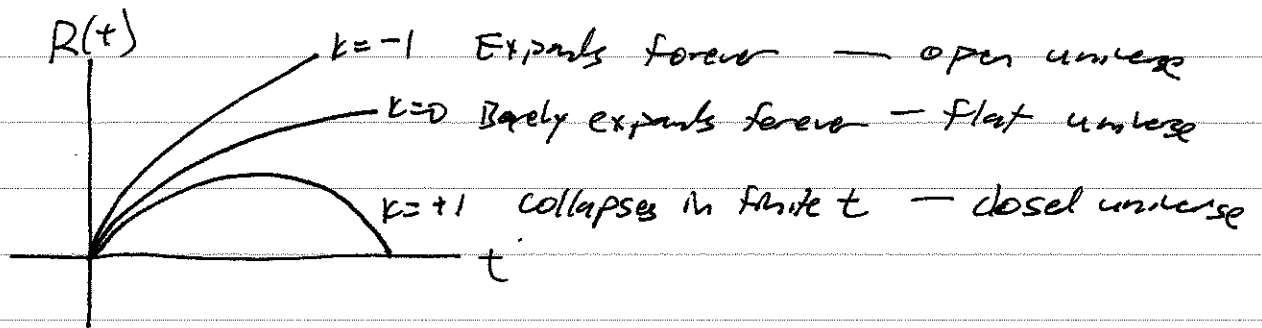 R(t)
k=-1 Expands forever — open universe
k=0 Barely expands forever — flat universe
k=+1 collapses in finite t — closed universe
t